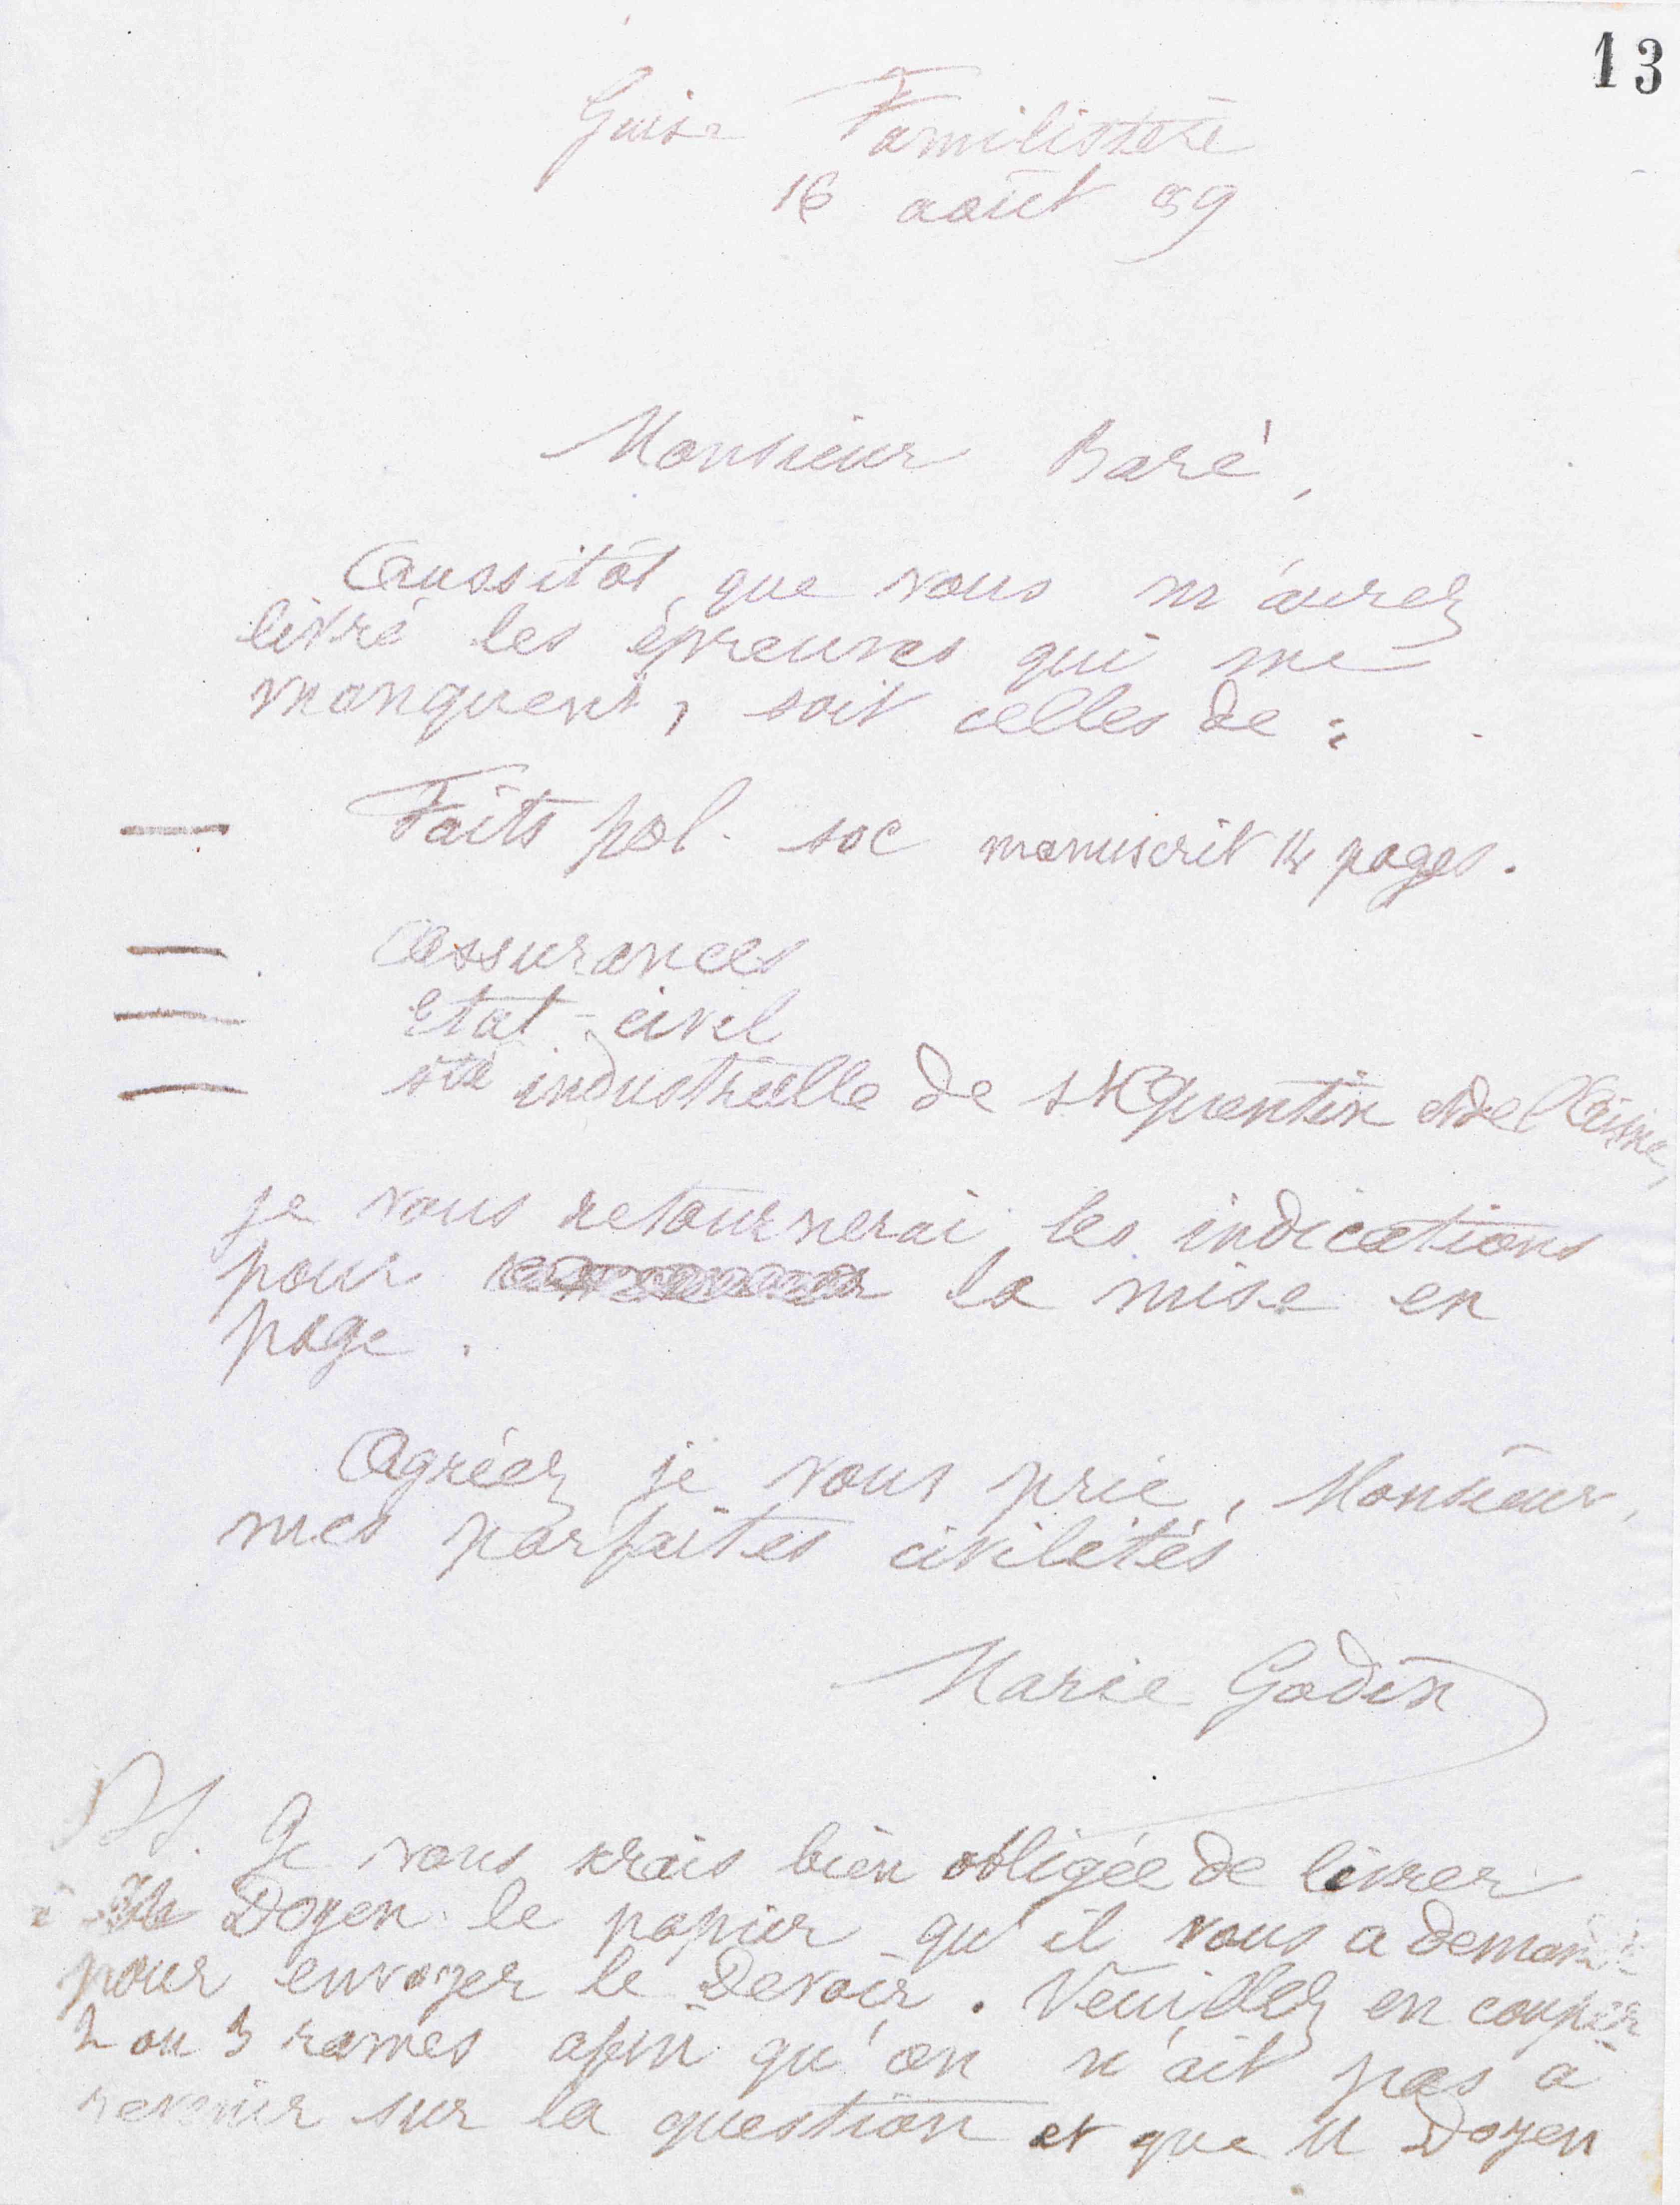 13
Guise Familistère
16 août 89
Monsieur Baré,
Aussitôt que vous m'aurez
livré les épreuves qui me
manquent, soit celles de :
— Faits pol. soc manuscrit 14 pages.
— Assurances
— Etat-civil
— sté industrielle de St Quentin et de l'Aisne,
je vous retournerai les indications
pour la mise en
page.
Agréez je vous prie, Monsieur,
mes parfaites civilités
Marie Godin
PS. Je vous serais bien obligée de livrer
à M Doyen le papier qu'il vous a demandé
pour envoyer le Devoir. Veuillez en couper
2 ou 3 rames afin qu'on n'ait pas à
revenir sur la question et que M Doyen